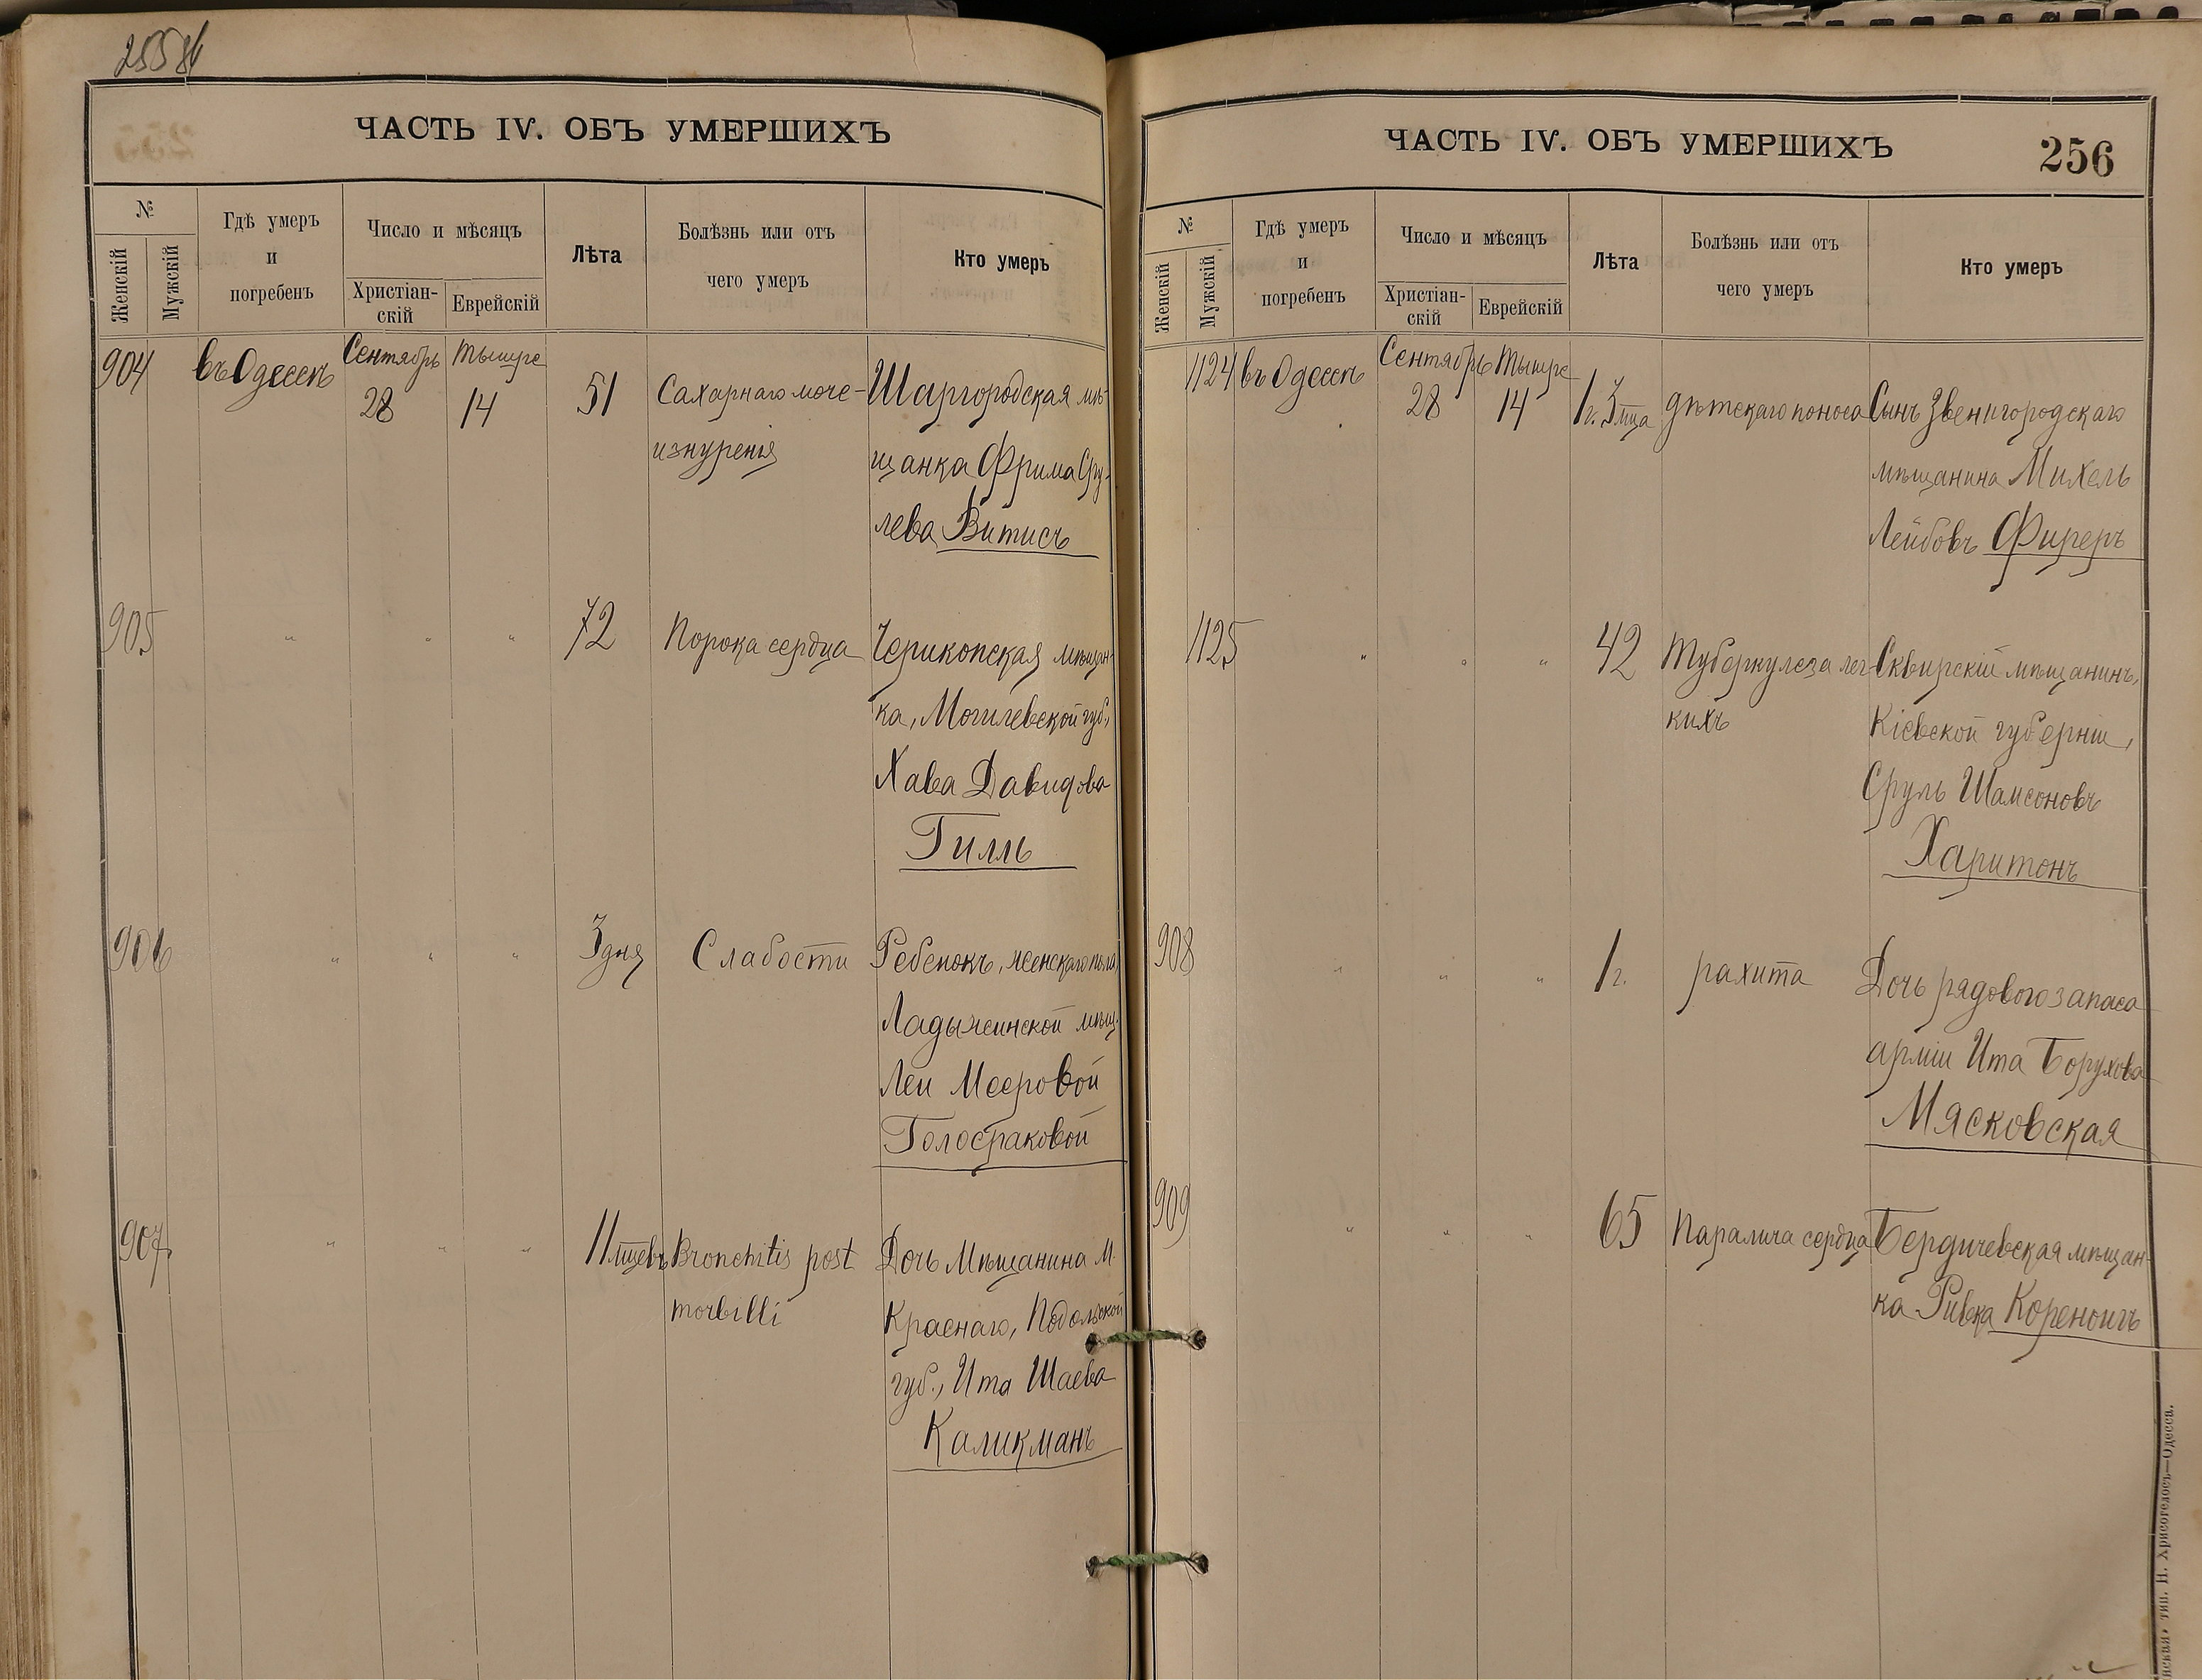 255 об
ЧАСТЬ IV. ОБЪ УМЕРШИХЪ
№
Женскій
Мужскій
Гдѣ умеръ
и
погребенъ
Число и мѣсяцъ
Христіан-
скій
Еврейскій
Лѣта
Болѣзнь или отъ
чего умеръ
Кто умеръ
904 въ Одессѣ Сентябрь 28 Тышре 14 51 Сахарнаго моче-
изнуренія
Шаргородская мѣ-
щанка Фрима Сру-
лева Витисъ
905 " " " 72 Порока сердца Чериковская мѣщан-
ка, Могилевской губ.,
Хава Давидова
Гилль
906 " " " 3 дня Слабости Ребенокъ, женскаго пола,
Ладыжинской мѣщ.
Леи Мееровой
Голостраковой
907 " " " 11 мцевъ Bronchitis post
morbilli
Дочь Мѣщанина М.
Краснаго, Подольской
губ., Ита Шаева
Каликманъ
ЧАСТЬ IV. ОБЪ УМЕРШИХЪ
256
№
Женскій
Мужскій
Гдѣ умеръ
и
погребенъ
Число и мѣсяцъ
Христіан-
скій
Еврейскій
Лѣта
Болѣзнь или отъ
чего умеръ
Кто умеръ
1124 въ Одессѣ Сентябрь 28 Тышре 14 1 г. 3 мца дѣтскаго поноса Сынъ Звенигородскаго
мѣщанина Михель
Лейбовъ Фиреръ
1125 " " " 42 Туберкулеза лег-
кихъ
Сквирскій мѣщанинъ,
Кіевской губерніи,
Сруль Шамсоновъ
Харитонъ
908 " " " 1 г. рахита Дочь рядового запаса
арміи Ита Борухова
Мясковская
909 " " " 65 Паралича сердца Бердичевская мѣщан-
ка Ривка Кореноигъ
тип. Н. Хрисогелосъ—Одесса.